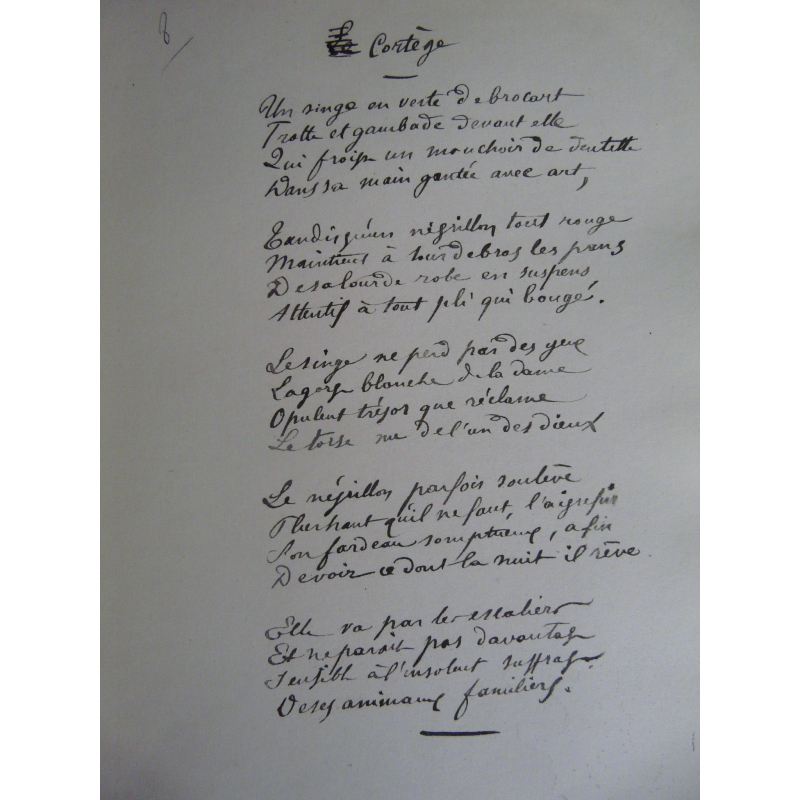 8
Cortège
Un singe en veste de brocart
Trotte et gambade devant elle
Qui froisse un mouchoir de dentelle
Dans sa main gantée avec art,
Tandis qu'un négrillon tout rouge
Maintient à tour de bras les pans
De sa lourde robe en suspens
Attentif à tout pli qui bouge.
Le singe ne perd pas des yeux
La gorge blanche de la dame
Opulent trésor que réclame
Le torse nu de l'un des dieux
Le négrillon parfois soulève
Plus haut qu'il ne faut, l'aigrefin
Son fardeau somptueux, afin
De voir ce dont la nuit il rêve
Elle va par les escaliers
Et ne paraît pas davantage
Sensible à l'insolent suffrage
De ses animaux familiers.